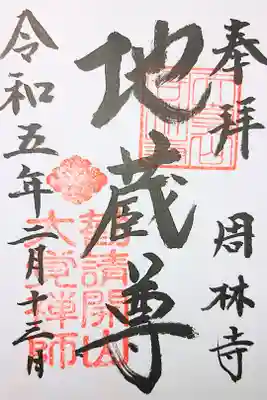 奉拝
周林寺
地蔵尊
勧請開山
大覚禅師
令和五年二月十三日